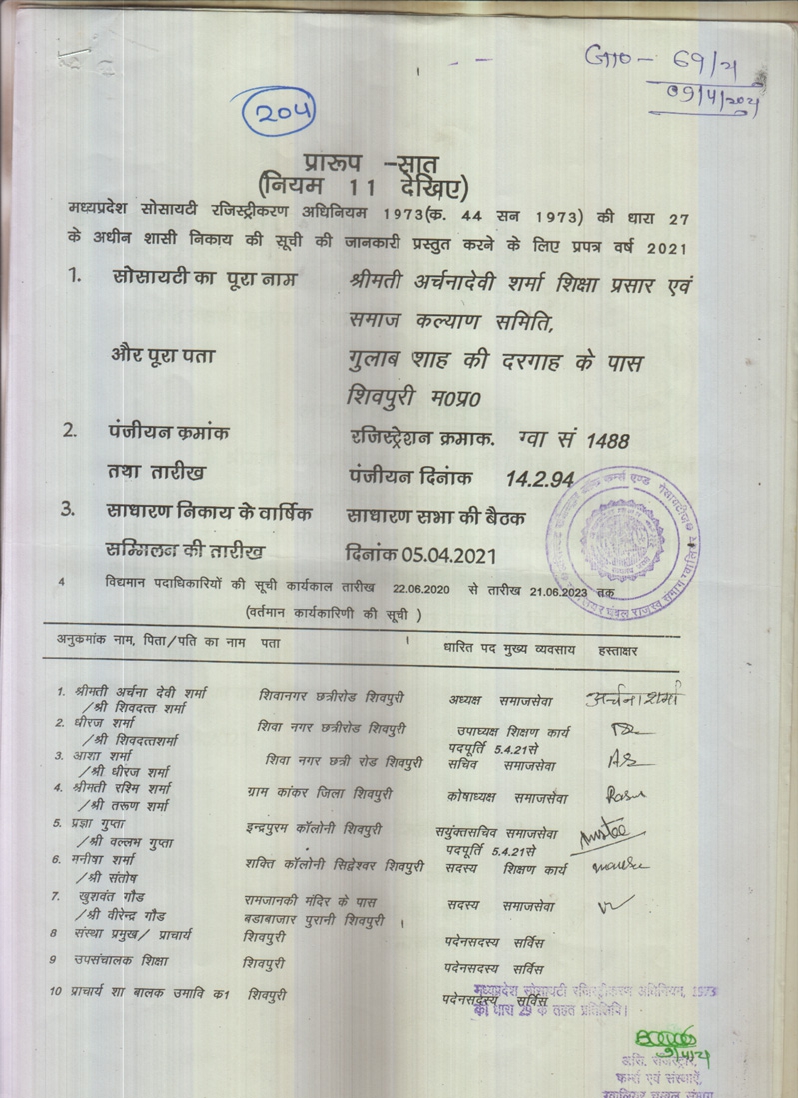 G110 - 69/21
09/4/2021
204
प्रारूप -सात
(नियम 11 देखिए)
मध्यप्रदेश सोसायटी रजिस्ट्रीकरण अधिनियम 1973(क. 44 सन 1973) की धारा 27
के अधीन शासी निकाय की सूची की जानकारी प्रस्तुत करने के लिए प्रपत्र वर्ष 2021
1. सोसायटी का पूरा नाम श्रीमती अर्चनादेवी शर्मा शिक्षा प्रसार एवं
समाज कल्याण समिति,
और पूरा पता गुलाब शाह की दरगाह के पास
शिवपुरी म0प्र0
2. पंजीयन क्रमांक रजिस्ट्रेशन क्रमाक. ग्वा सं 1488
तथा तारीख पंजीयन दिनांक 14.2.94
3. साधारण निकाय के वार्षिक साधारण सभा की बैठक
सम्मिलन की तारीख दिनांक 05.04.2021
4 विद्यमान पदाधिकारियों की सूची कार्यकाल तारीख 22.06.2020 से तारीख 21.06.2023 तक
(वर्तमान कार्यकारिणी की सूची )
अनुकमांक नाम, पिता/पति का नाम पता धारित पद मुख्य व्यवसाय हस्ताक्षर
1. श्रीमती अर्चना देवी शर्मा शिवानगर छत्रीरोड शिवपुरी अध्यक्ष समाजसेवा अर्चना शर्मा
/श्री शिवदत्त शर्मा
2. धीरज शर्मा शिवा नगर छत्रीरोड शिवपुरी उपाध्यक्ष शिक्षण कार्य
/श्री शिवदत्तशर्मा पदपूर्ति 5.4.21से
3. आशा शर्मा शिवा नगर छत्री रोड शिवपुरी सचिव समाजसेवा
/श्री धीरज शर्मा
4. श्रीमती रश्मि शर्मा ग्राम कांकर जिला शिवपुरी कोषाध्यक्ष समाजसेवा
/श्री तरूण शर्मा
5. प्रज्ञा गुप्ता इन्द्रपुरम कॉलोनी शिवपुरी सयुंक्तसचिव समाजसेवा
/श्री वल्लम गुप्ता पदपूर्ति 5.4.21से
6. मनीषा शर्मा शक्ति कॉलोनी सिद्वेश्वर शिवपुरी सदस्य शिक्षण कार्य
/श्री संतोष
7. खुशवंत गौड रामजानकी मंदिर के पास सदस्य समाजसेवा
/श्री वीरेन्द्र गौड बडाबाजार पुरानी शिवपुरी
8 संस्था प्रमुख/ प्राचार्य शिवपुरी पदेनसदस्य सर्विस
9 उपसंचालक शिक्षा शिवपुरी पदेनसदस्य सर्विस
10 प्राचार्य शा बालक उमावि क1 शिवपुरी पदेनसदस्य सर्विस
मध्यप्रदेश सोसायटी रजिस्ट्रीकरण अधिनियम, 1973
की धारा 29 के तहत प्रतिलिपि।
9/4/21
असि. रजिस्ट्रार,
फर्म्स एवं संस्थाऐं,
ग्वालियर चम्बल संभाग